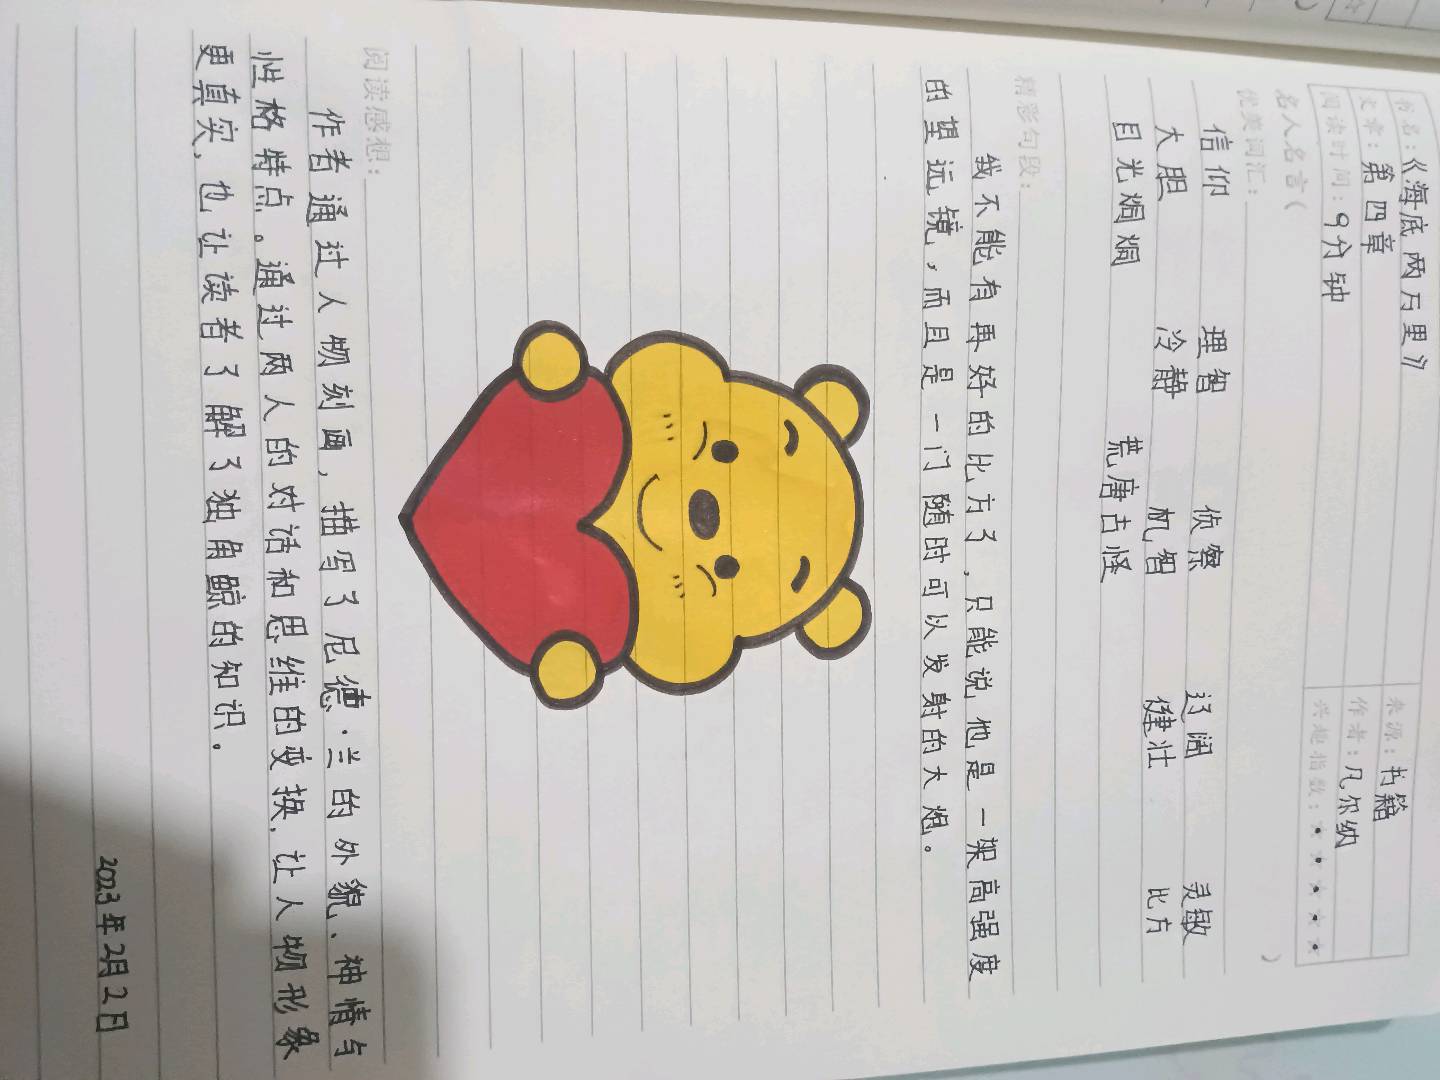 书名：《海底两万里》
来源：书籍
文章：第四章
作者：凡尔纳
阅读时间：9分钟
兴趣指数：★★★★★
名人名言（ ）
优美词汇：
信仰 理智 侦察 辽阔 灵敏
大胆 冷静 机智 健壮 比方
目光炯炯 荒唐古怪
精彩句段：
我不能有再好的比方了，只能说他是一架高强度
的望远镜，而且是一门随时可以发射的大炮。
阅读感想：
作者通过人物刻画，描写了尼德·兰的外貌、神情与
性格特点。通过两人的对话和思维的变换，让人物形象
更真实，也让读者了解了独角鲸的知识。
2023年2月2日